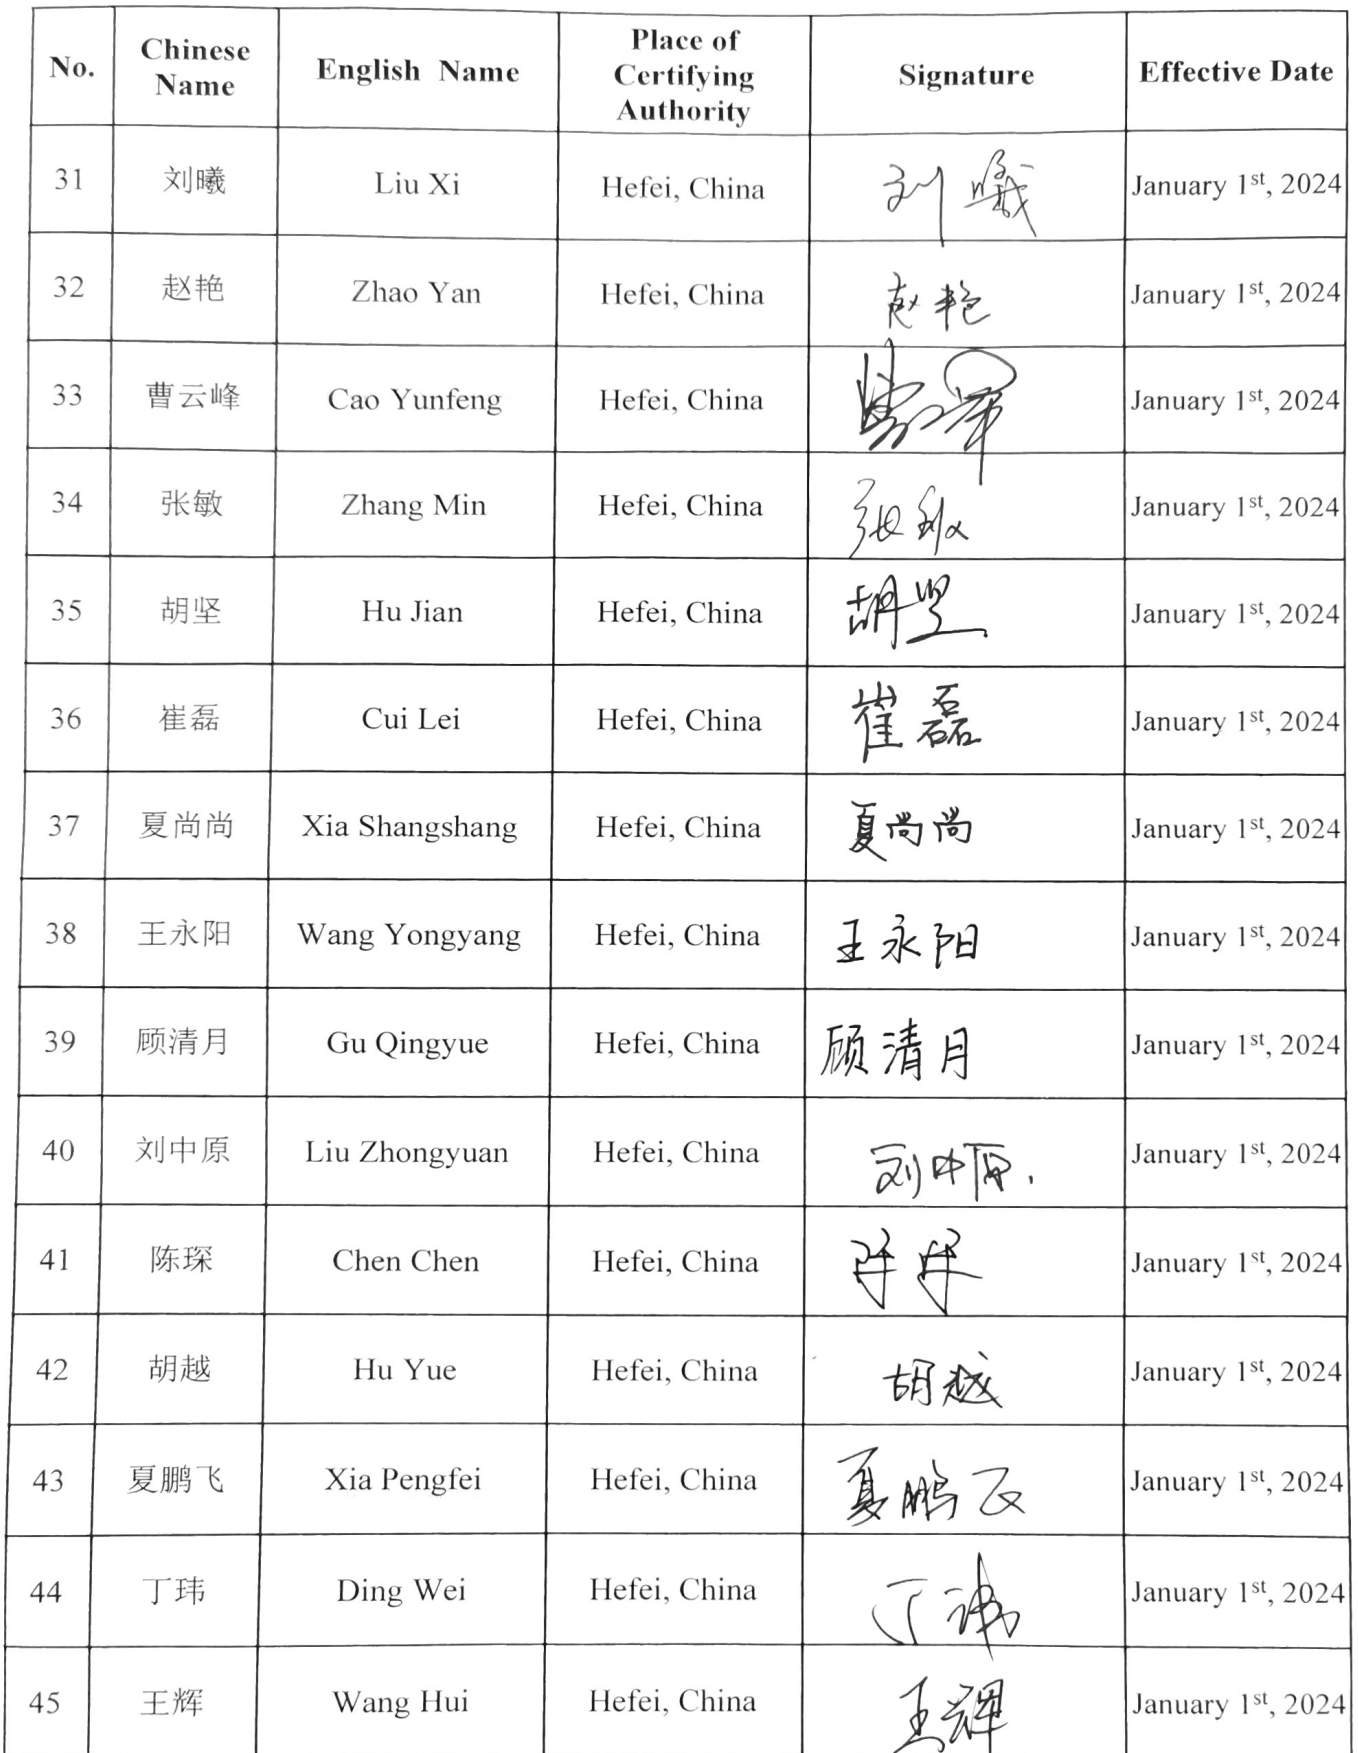 No. Chinese Name English Name Place of Certifying Authority Signature Effective Date
31 刘曦 Liu Xi Hefei, China 刘曦 January 1st, 2024
32 赵艳 Zhao Yan Hefei, China 赵艳 January 1st, 2024
33 曹云峰 Cao Yunfeng Hefei, China January 1st, 2024
34 张敏 Zhang Min Hefei, China 张敏 January 1st, 2024
35 胡坚 Hu Jian Hefei, China 胡坚 January 1st, 2024
36 崔磊 Cui Lei Hefei, China 崔磊 January 1st, 2024
37 夏尚尚 Xia Shangshang Hefei, China 夏尚尚 January 1st, 2024
38 王永阳 Wang Yongyang Hefei, China 王永阳 January 1st, 2024
39 顾清月 Gu Qingyue Hefei, China 顾清月 January 1st, 2024
40 刘中原 Liu Zhongyuan Hefei, China 刘中原. January 1st, 2024
41 陈琛 Chen Chen Hefei, China January 1st, 2024
42 胡越 Hu Yue Hefei, China 胡越 January 1st, 2024
43 夏鹏飞 Xia Pengfei Hefei, China 夏鹏飞 January 1st, 2024
44 丁玮 Ding Wei Hefei, China 丁玮 January 1st, 2024
45 王辉 Wang Hui Hefei, China 王辉 January 1st, 2024